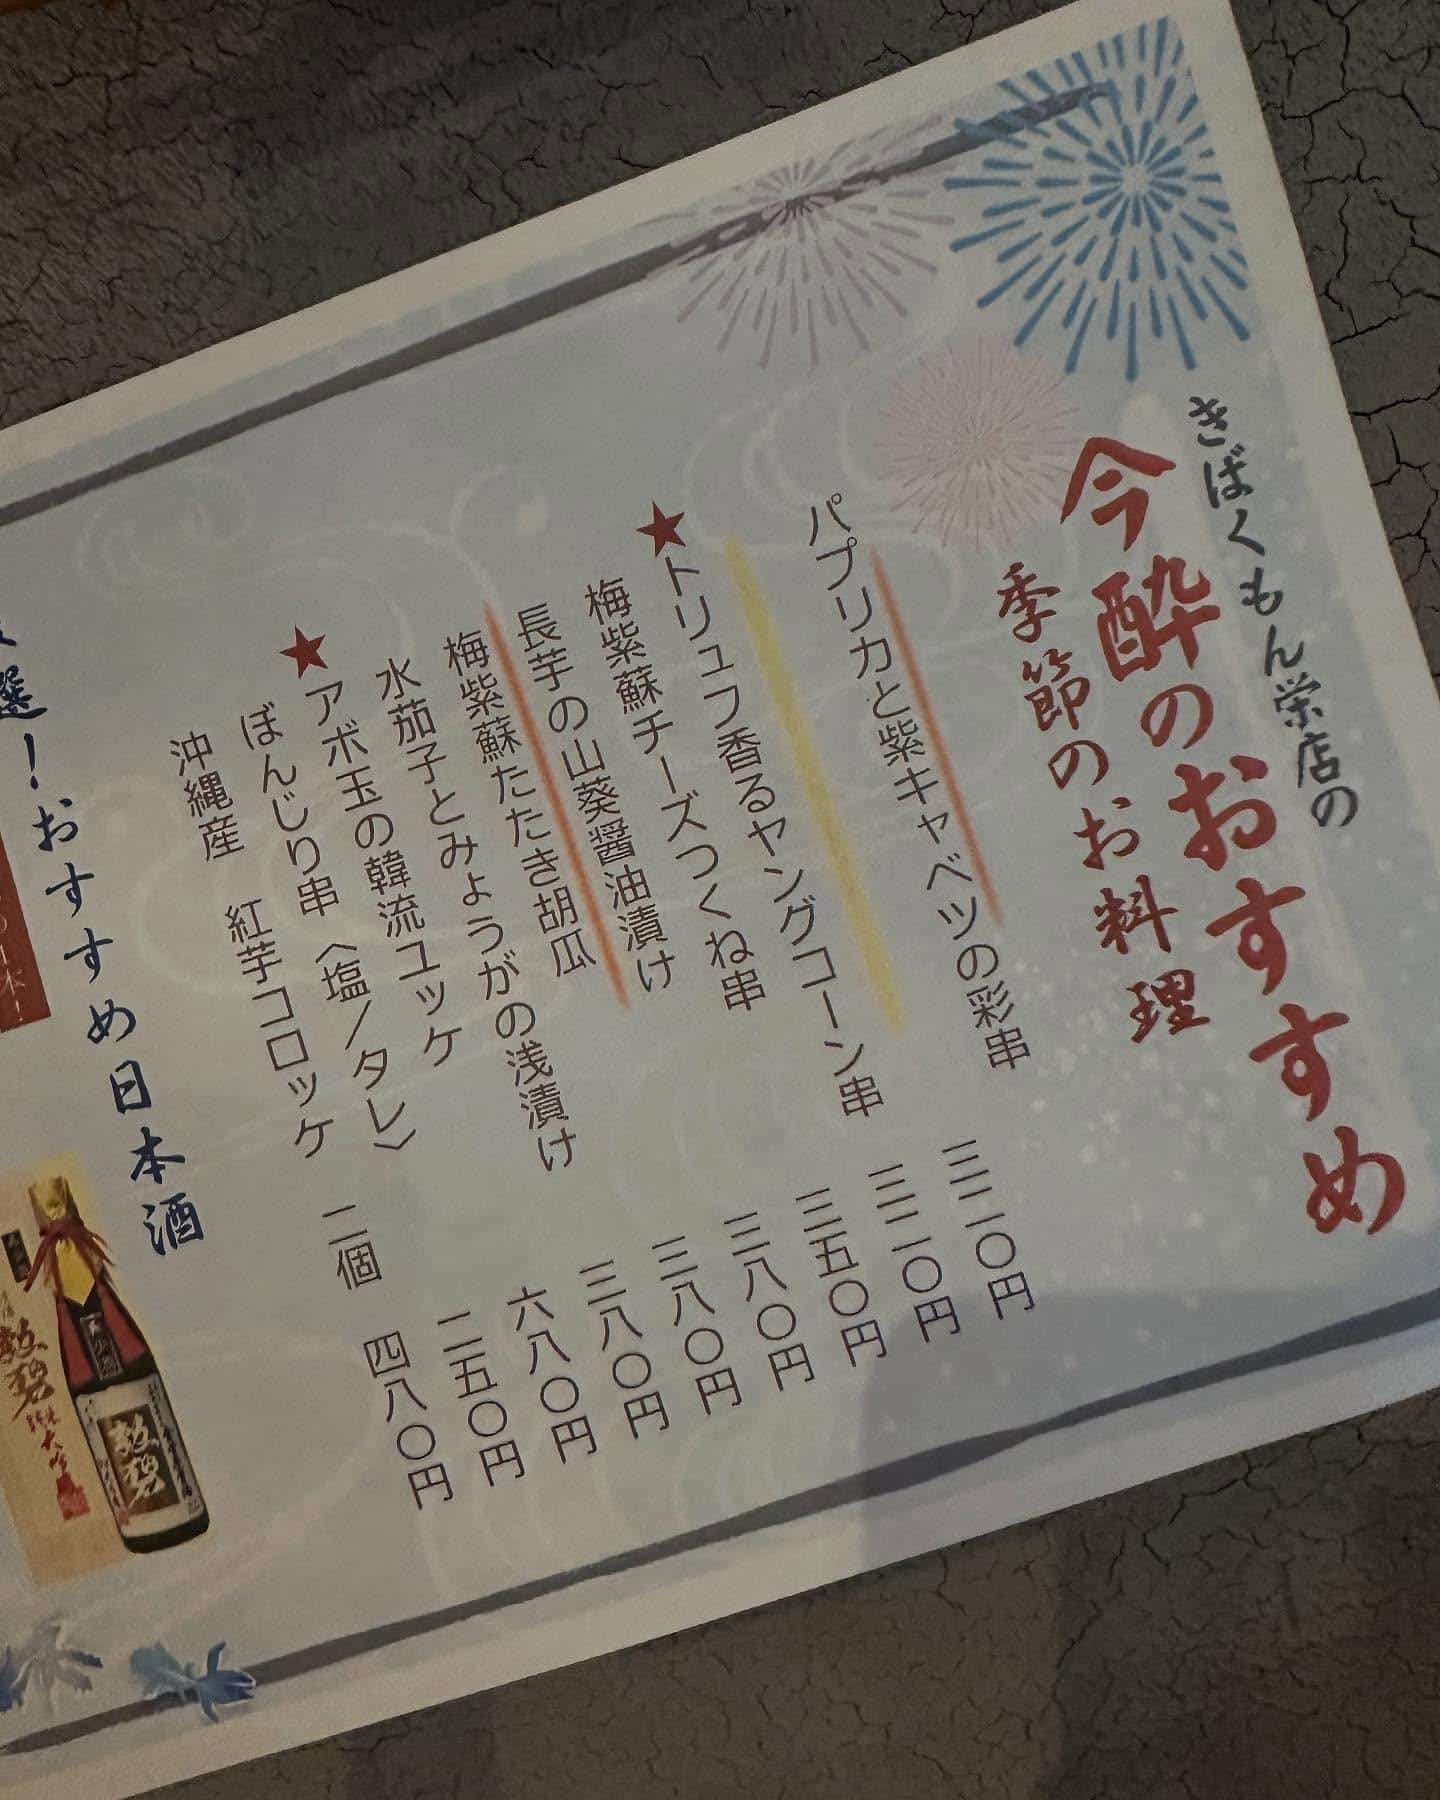 きばくもん栄店の
今酔のおすすめ
季節のお料理
パプリカと紫キャベツの彩串 三二〇円
★トリュフ香るヤングコーン串 三二〇円
梅紫蘇チーズつくね串 三五〇円
長芋の山葵醤油漬け 三八〇円
梅紫蘇たたき胡瓜 三八〇円
水茄子とみょうがの浅漬け 三八〇円
★アボ玉の韓流ユッケ 六八〇円
ぼんじり串〈塩/タレ〉 二五〇円
沖縄産 紅芋コロッケ 二個 四八〇円
選!おすすめ日本酒